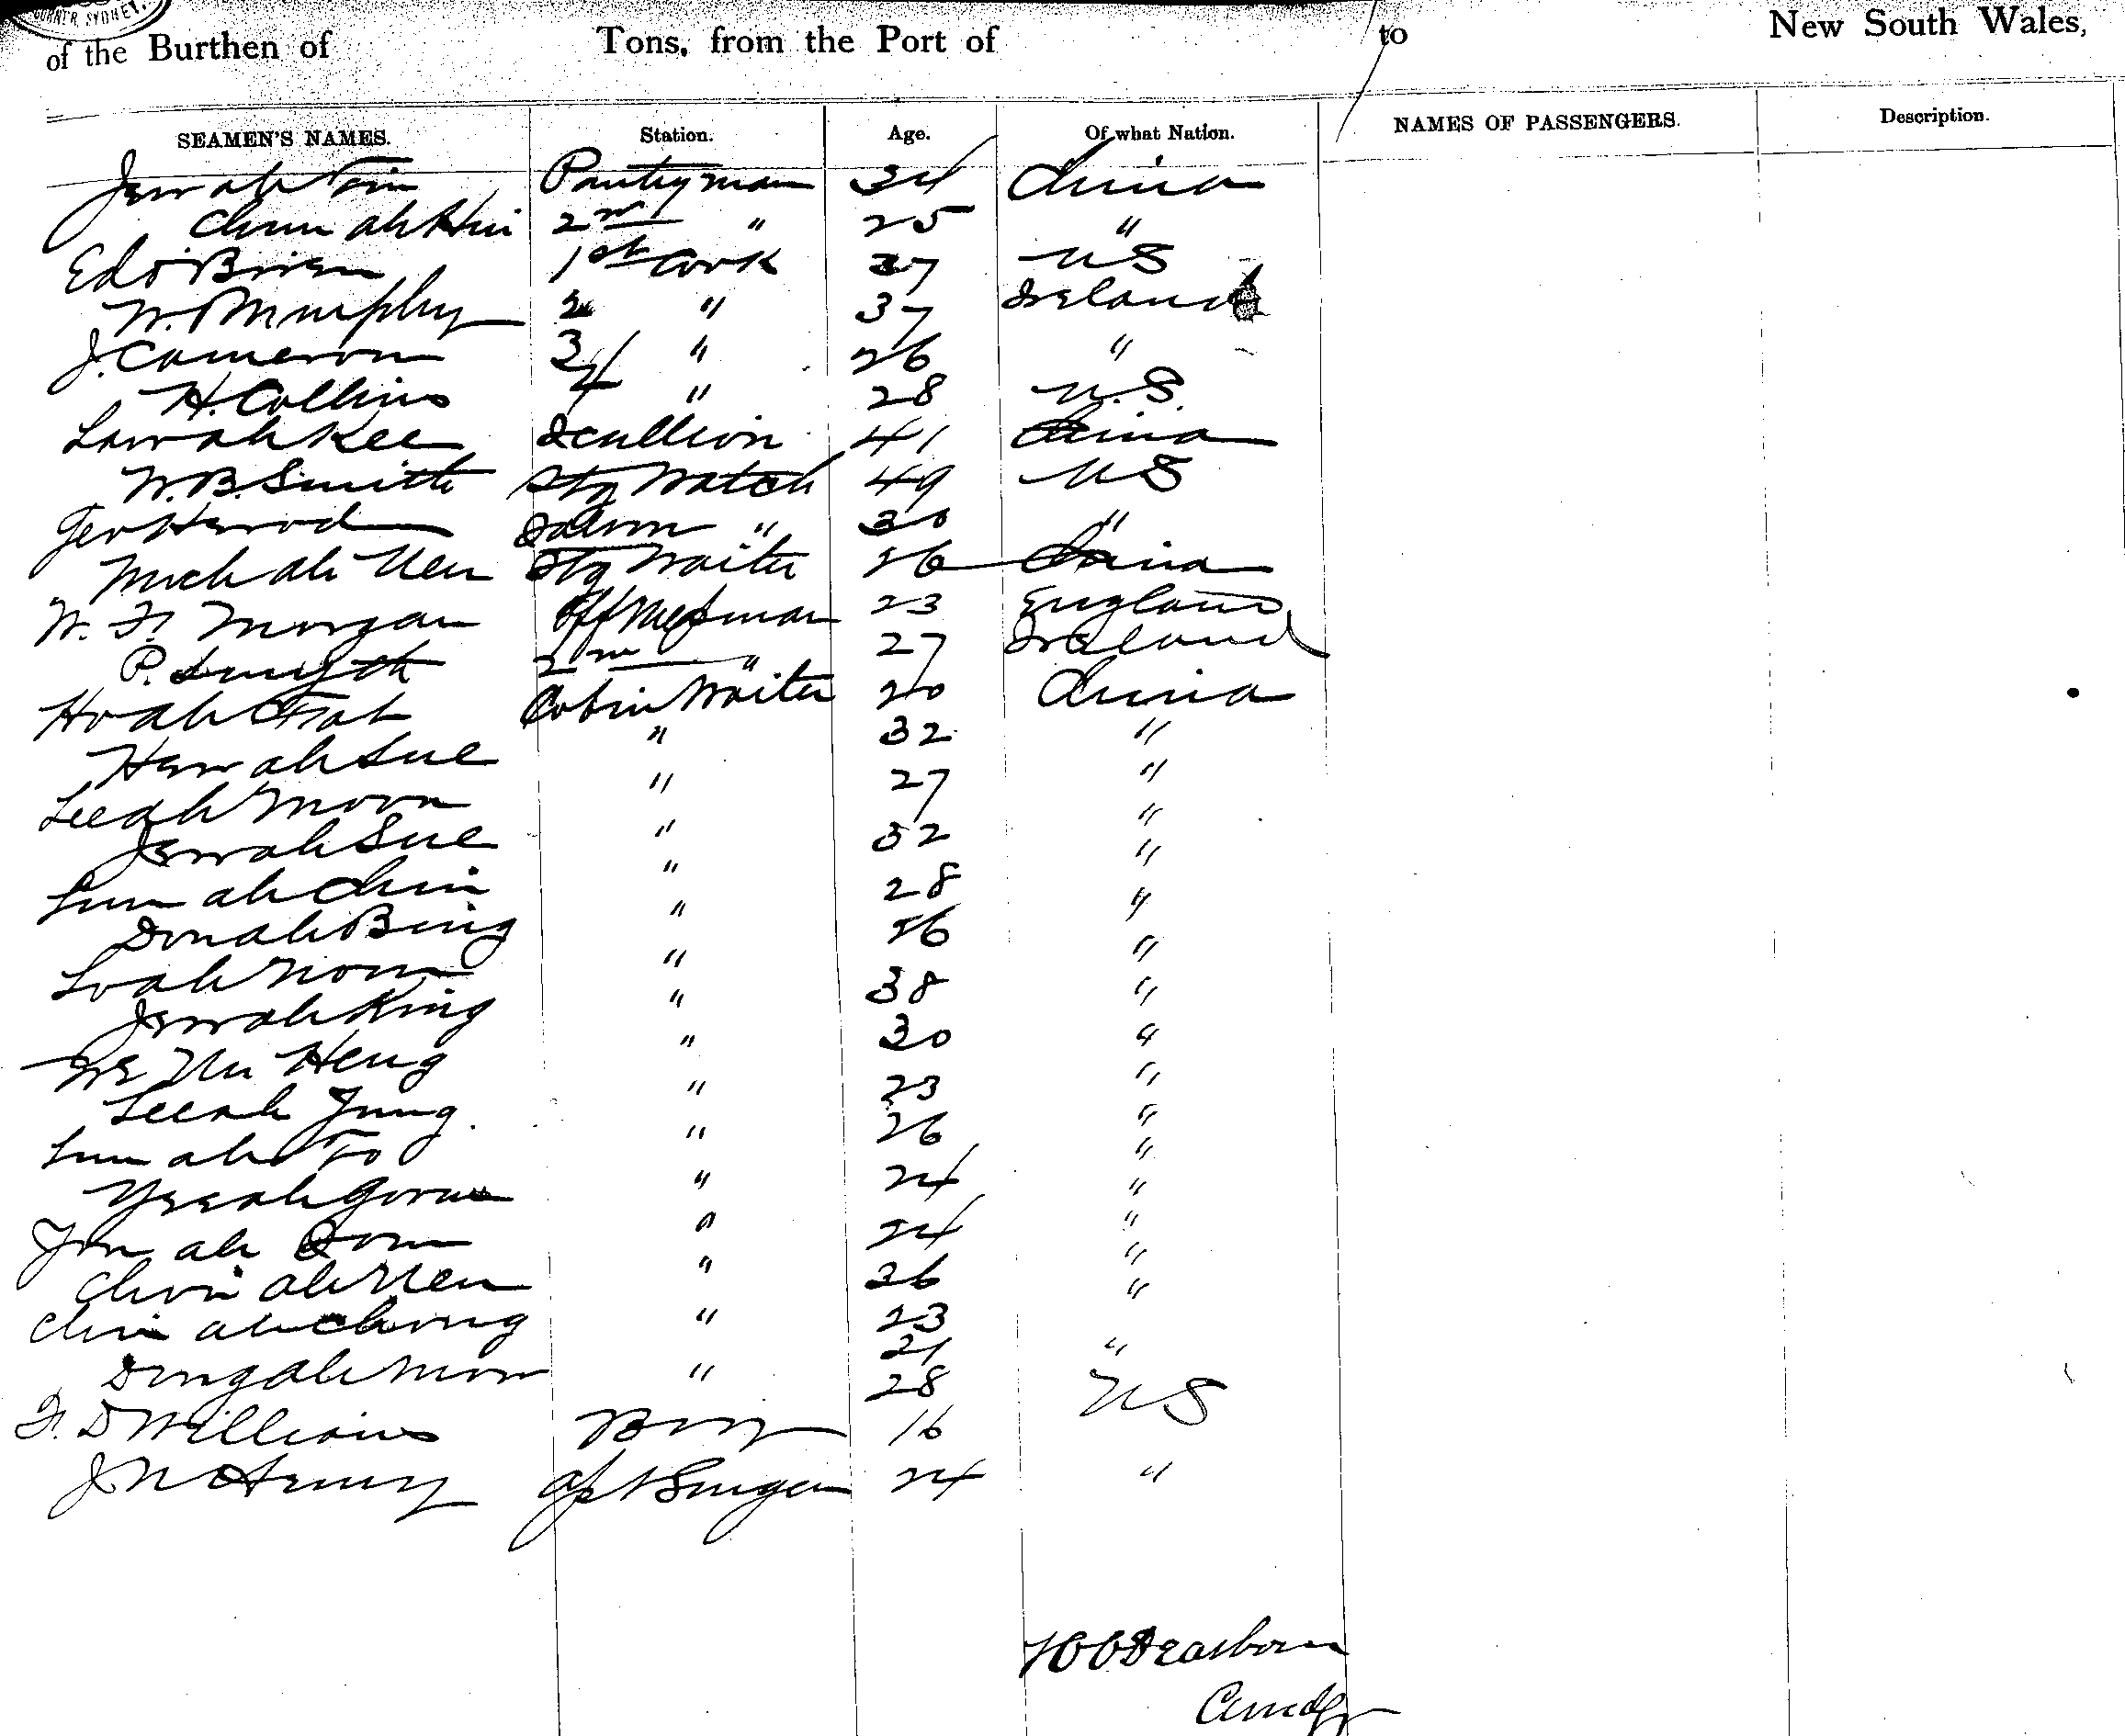 CORNER, SYDNEY.
of the Burthen of Tons, from the Port of to New South Wales,
SEAMEN'S NAMES. Station. Age. Of what Nation. NAMES OF PASSENGERS. Description.
Jew ah Tim Pantryman 34 China
Chun ah Hin 2nd " 25 "
Ed O'Brien 1st Cook 37 US
W. Murphy 2 " 37 Ireland
J. Cameron 3 " 26 "
H. Collins 4 " 28 U.S.
Law ah Kee Scullion 41 China
W. B. Smith Stg Watch 49 US
Geo Harrod Saloon " 30 "
ah Stg Waiter 26 China
W. F. Morgan Off Messman 23 England
P. Smyth 2nd " 27 Ireland
Ho ah Fat Cabin Waiter 20 China
Hew ah Sue " 32 "
Lee ah Moon " 27 "
Jew ah Sue " 32 "
Lum ah Chin " 28 "
Don ah Bing " 26 "
Lo ah " 38 "
Jew ah King " 30 "
Heng " 23 "
Lee ah Jung " 26 "
Lum ah To " 24 "
Yee ah " 24 "
ah " 26 "
ah " 23 "
ah Chong " 21 "
Dong ah " 28 "
F. D Williams Boy 16 US
J N Henry 24 "
H C Dearborn
Comdr